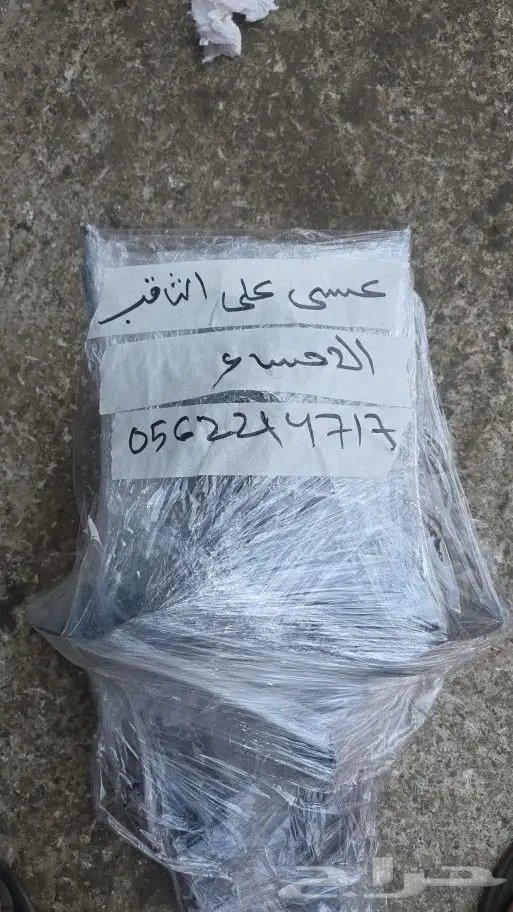 عيسى علي الثاقب
الاحساء
0562244717
حراج